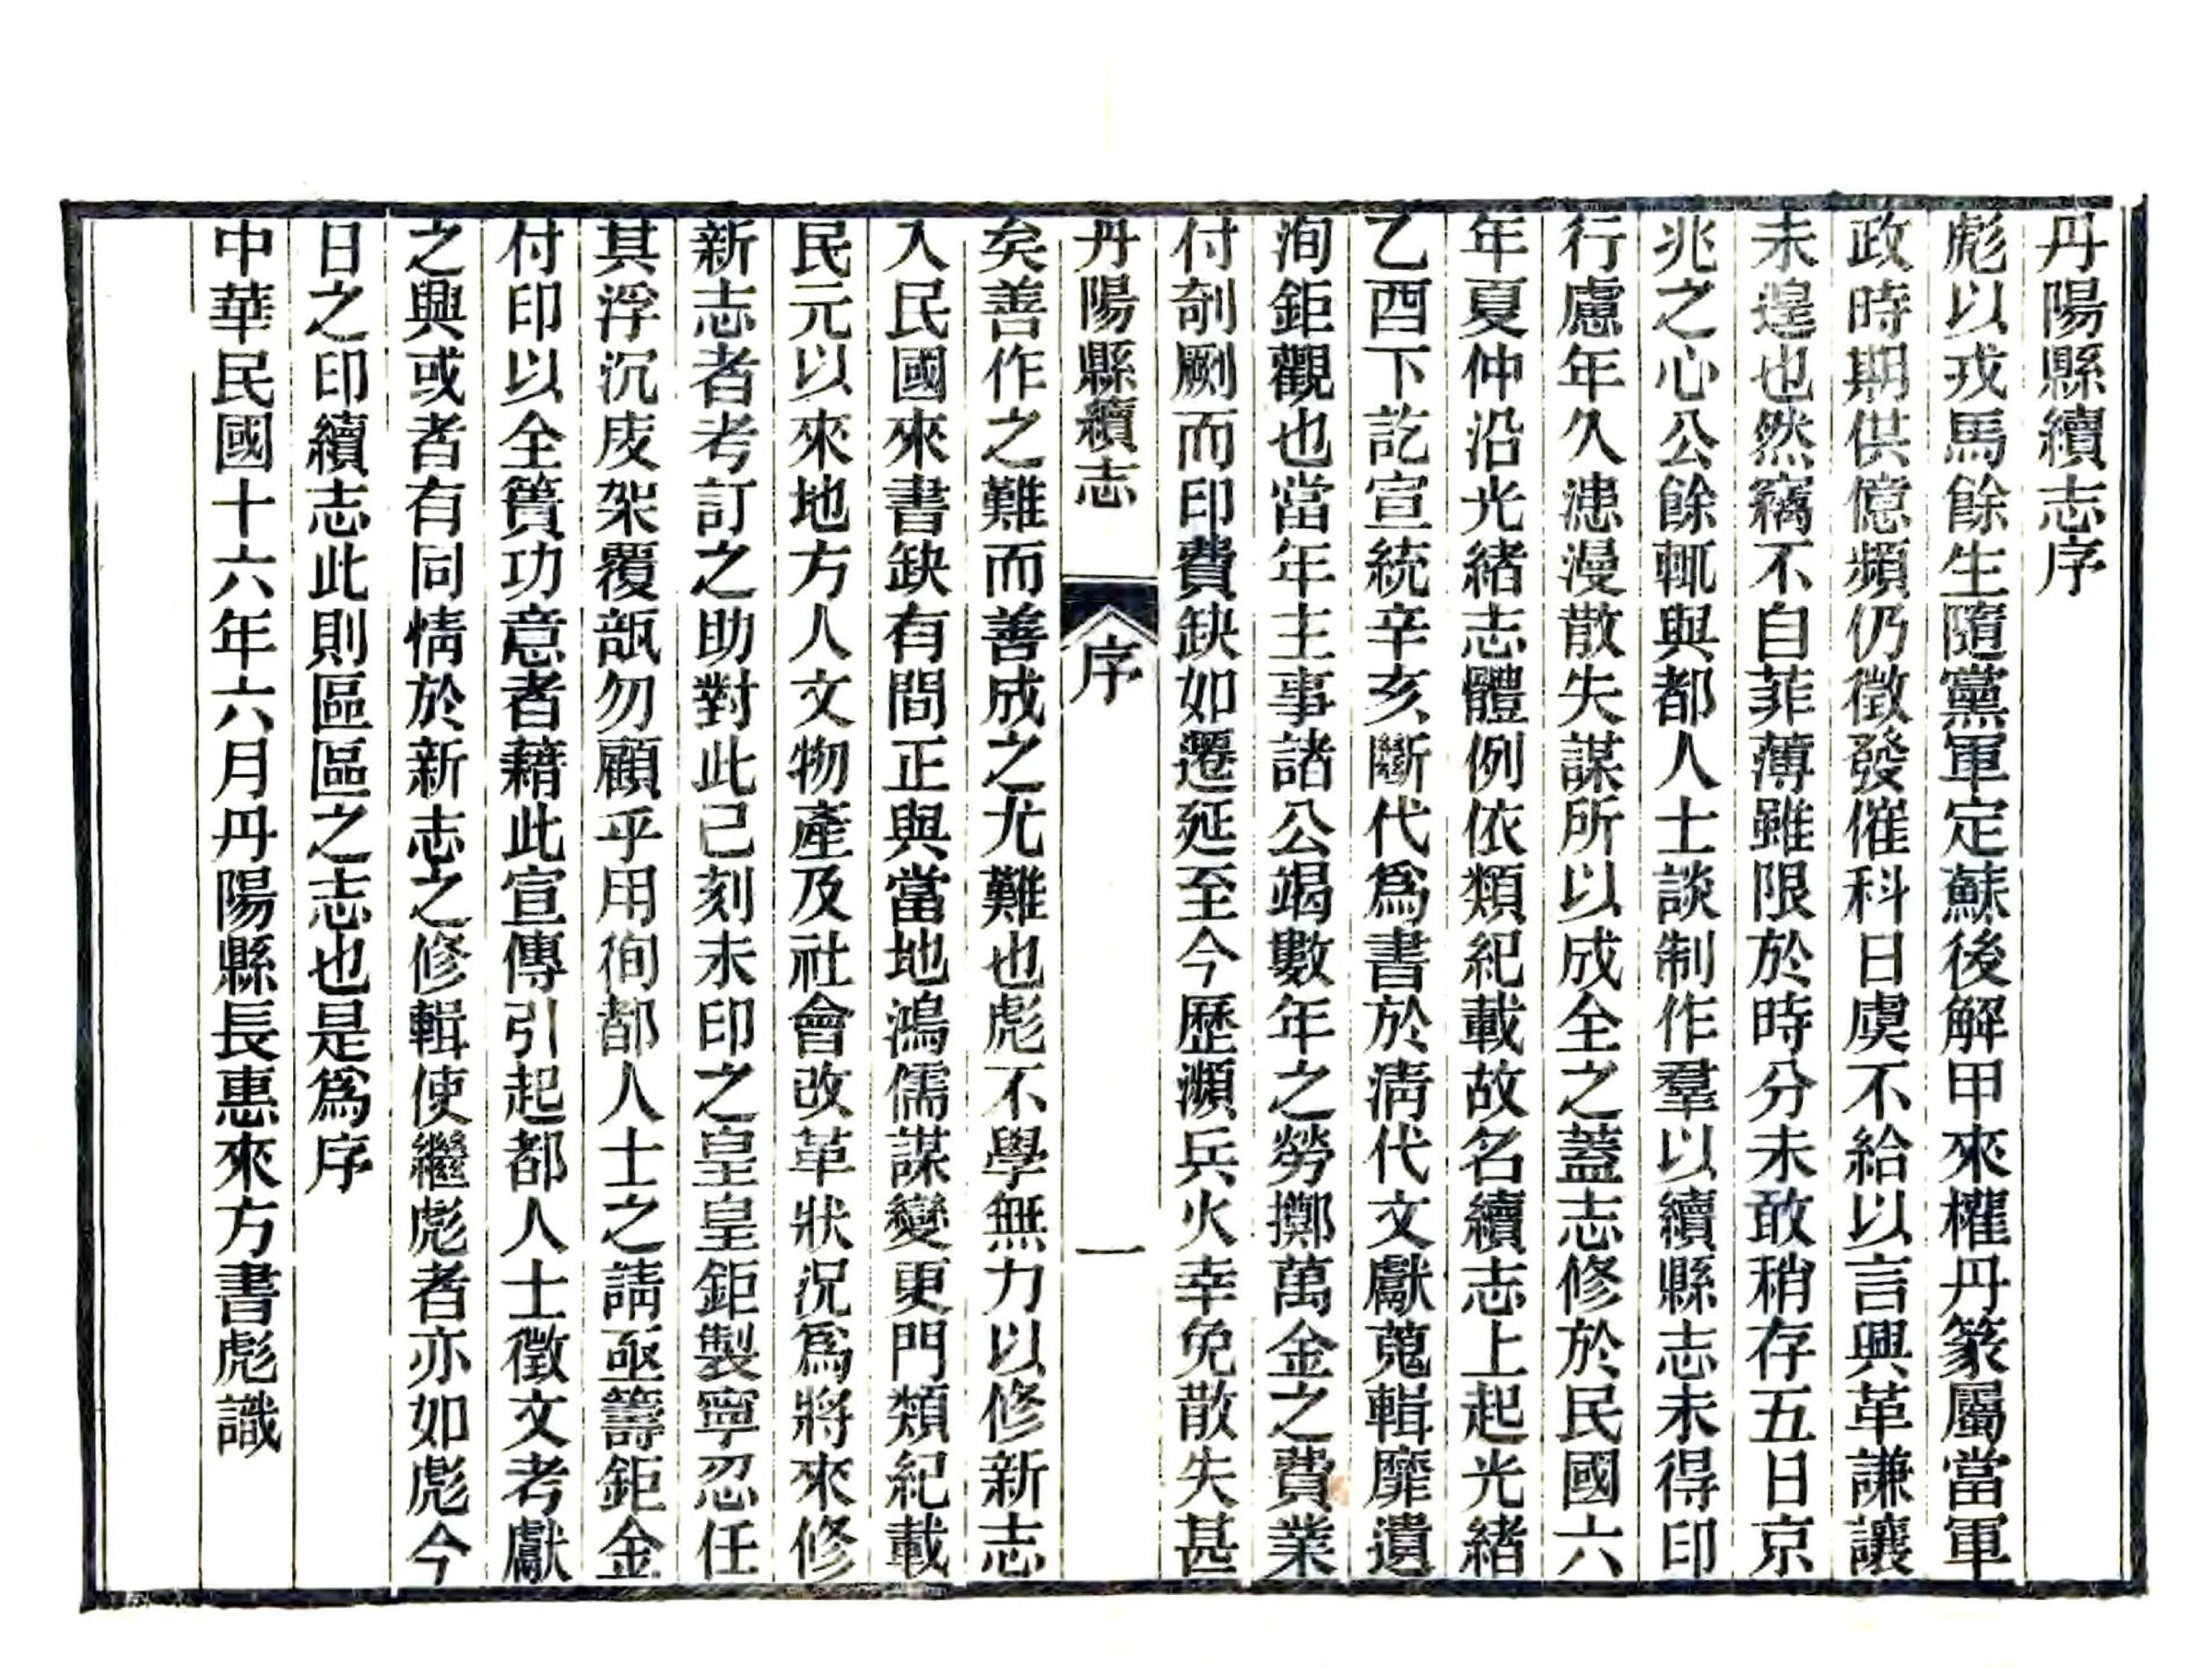 丹陽縣續志序
彪以戎馬餘生隨黨軍定蘇後解甲來權丹篆屬當軍
政時期供億頻仍徵發催科日虞不給以言興革謙讓
未遑也然竊不自菲薄雖限於時分未敢稍存五日京
兆之心公餘輒與都人士談制作羣以續縣志未得印
行慮年久漶漫散失謀所以成全之蓋志修於民國六
年夏仲沿光緒志體例依類紀載故名續志上起光緒
乙酉下訖宣統辛亥斷代爲書於清代文獻蒐輯靡遺
洵鉅觀也當年主事諸公竭數年之勞擲萬金之費業
付剞劂而印費缺如遷延至今歷瀕兵火幸免散失甚
丹陽縣續志
序
一
矣善作之難而善成之尤難也彪不學無力以修新志
入民國來書缺有間正與當地鴻儒謀變更門類紀載
民元以來地方人文物產及社會改革狀況爲將來修
新志者考訂之助對此已刻未印之皇皇鉅製寧忍任
其浮沉庋架覆瓿勿顧乎用徇都人士之請亟籌鉅金
付印以全簣功意者藉此宣傳引起都人士徵文考獻
之興或者有同情於新志之修輯使繼彪者亦如彪今
日之印續志此則區區之志也是爲序
中華民國十六年六月丹陽縣長惠來方書彪識